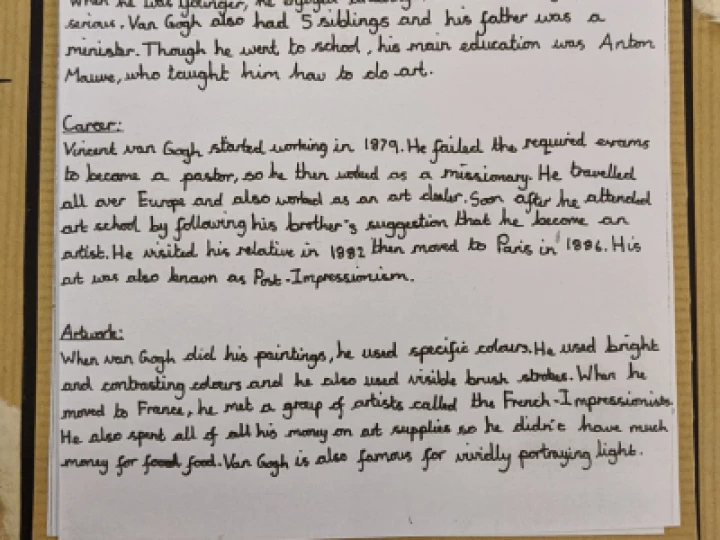 When he was younger, he enjoyed
serious. Van Gogh also had 5 siblings and his father was a
minister. Though he went to school, his main education was Anton
Mauve, who taught him how to do art.
Career:
Vincent van Gogh started working in 1879. He failed the required exams
to become a pastor, so he then worked as a missionary. He travelled
all over Europe and also worked as an art dealer. Soon after he attended
art school by following his brother's suggestion that he become an
artist. He visited his relative in 1882 then moved to Paris in 1886. His
art was also known as Post-Impressionism.
Artwork:
When van Gogh did his paintings, he used specific colours. He used bright
and contrasting colours and he also used visible brush strokes. When he
moved to France, he met a group of artists called the French-Impressionists.
He also spent all of all his money on art supplies so he didn't have much
money for food food. Van Gogh is also famous for vividly portraying light.